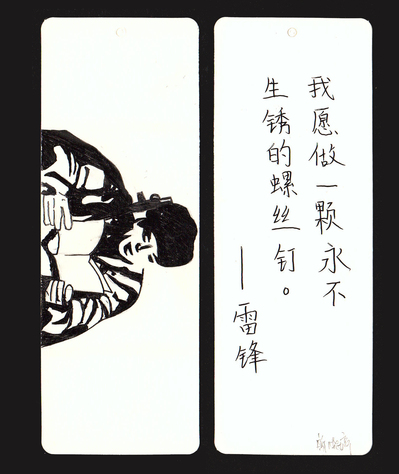 我愿做一颗永不
生锈的螺丝钉。
——雷锋